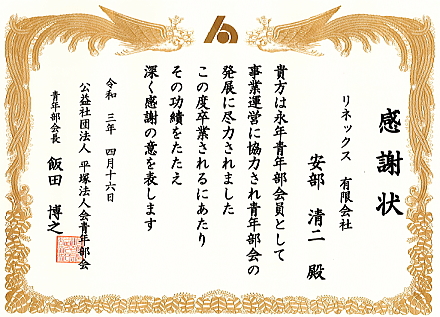 感謝状
リネックス 有限会社
安部 清二 殿
貴方は永年青年部会員として
事業運営に協力され青年部会の
発展に尽力されました
この度卒業されるにあたり
その功績をたたえ
深く感謝の意を表します
令和 三年 四月十六日
公益社団法人 平塚法人会青年部会
青年部会長 飯田 博之